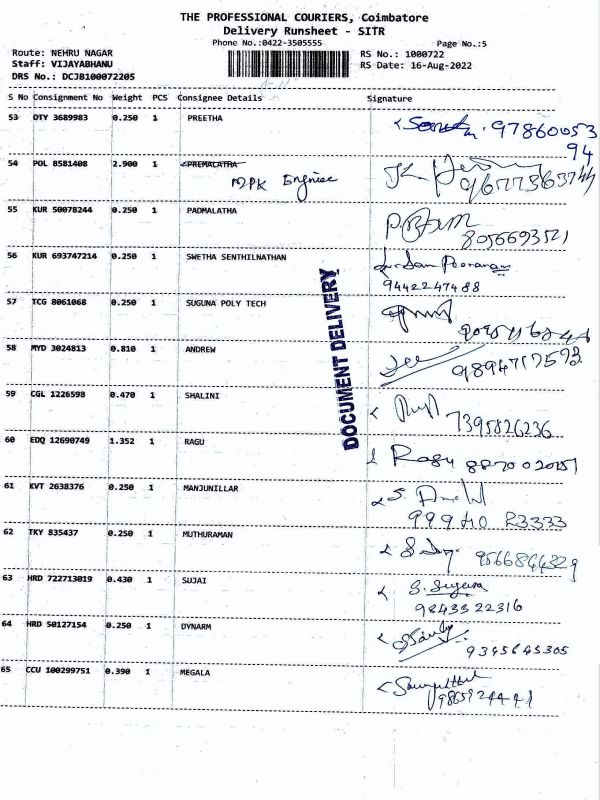 THE PROFESSIONAL COURIERS, Coimbatore
Delivery Runsheet - SITR
Phone No.:0422-3505555 Page No.:5
Route: NEHRU NAGAR RS No.: 1000722
Staff: VIJAYABHANU RS Date: 16-Aug-2022
DRS No.: DCJB100072205
S No Consignment No Weight PCS Consignee Details Signature
53 OTY 3689983 0.250 1 PREETHA 97860053
94
54 POL 8581408 2.900 1 PREMALATHA
55 KUR 50078244 0.250 1 PADMALATHA
8056693521
56 KUR 693747214 0.250 1 SWETHA SENTHILNATHAN
9442247488
57 TCG 8061068 0.250 1 SUGUNA POLY TECH
58 MYD 3024813 0.810 1 ANDREW
DOCUMENT DELIVERY
59 CGL 1226598 0.470 1 SHALINI
7395826236
60 EDQ 12690749 1.352 1 RAGU Ragu
61 KVT 2638376 0.250 1 MANJUNILLAR
62 TKY 835437 0.250 1 MUTHURAMAN
63 HRD 722713019 0.430 1 SUJAI
9843322316
64 HRD 50127154 0.250 1 DYNARM
9345645305
65 CCU 100299751 0.390 1 MEGALA